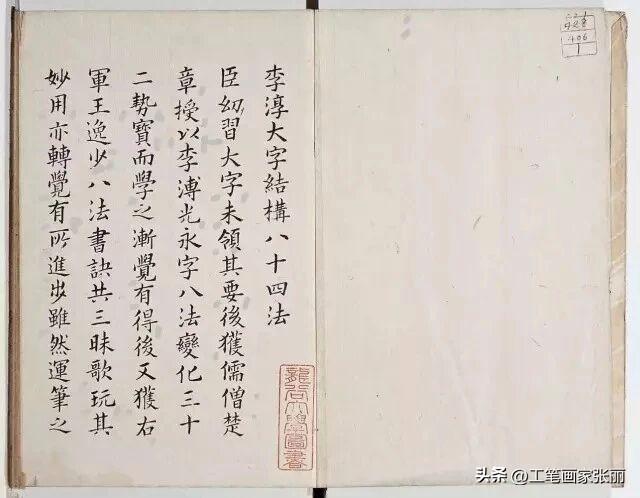 李淳大字結構八十四法
臣幼習大字未領其要後獲儒僧楚
章授以李溥光永字八法變化三十
二勢寶而學之漸覺有得後又獲右
軍王逸少八法書訣共三昧歌玩其
妙用亦轉覺有所進步雖然運筆之
龍谷大學圖書
406
1
头条 @工笔画家张丽